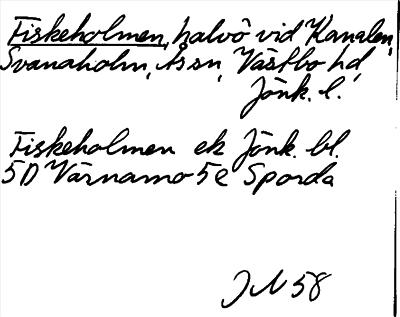 Fiskeholmen, halvö vid Kanalen,
Svanaholm, Åssn, Västbo hd,
Jönk. l.
Fiskeholmen ek Jönk. bl.
5D Värnamo 5e Sporda
JN 58